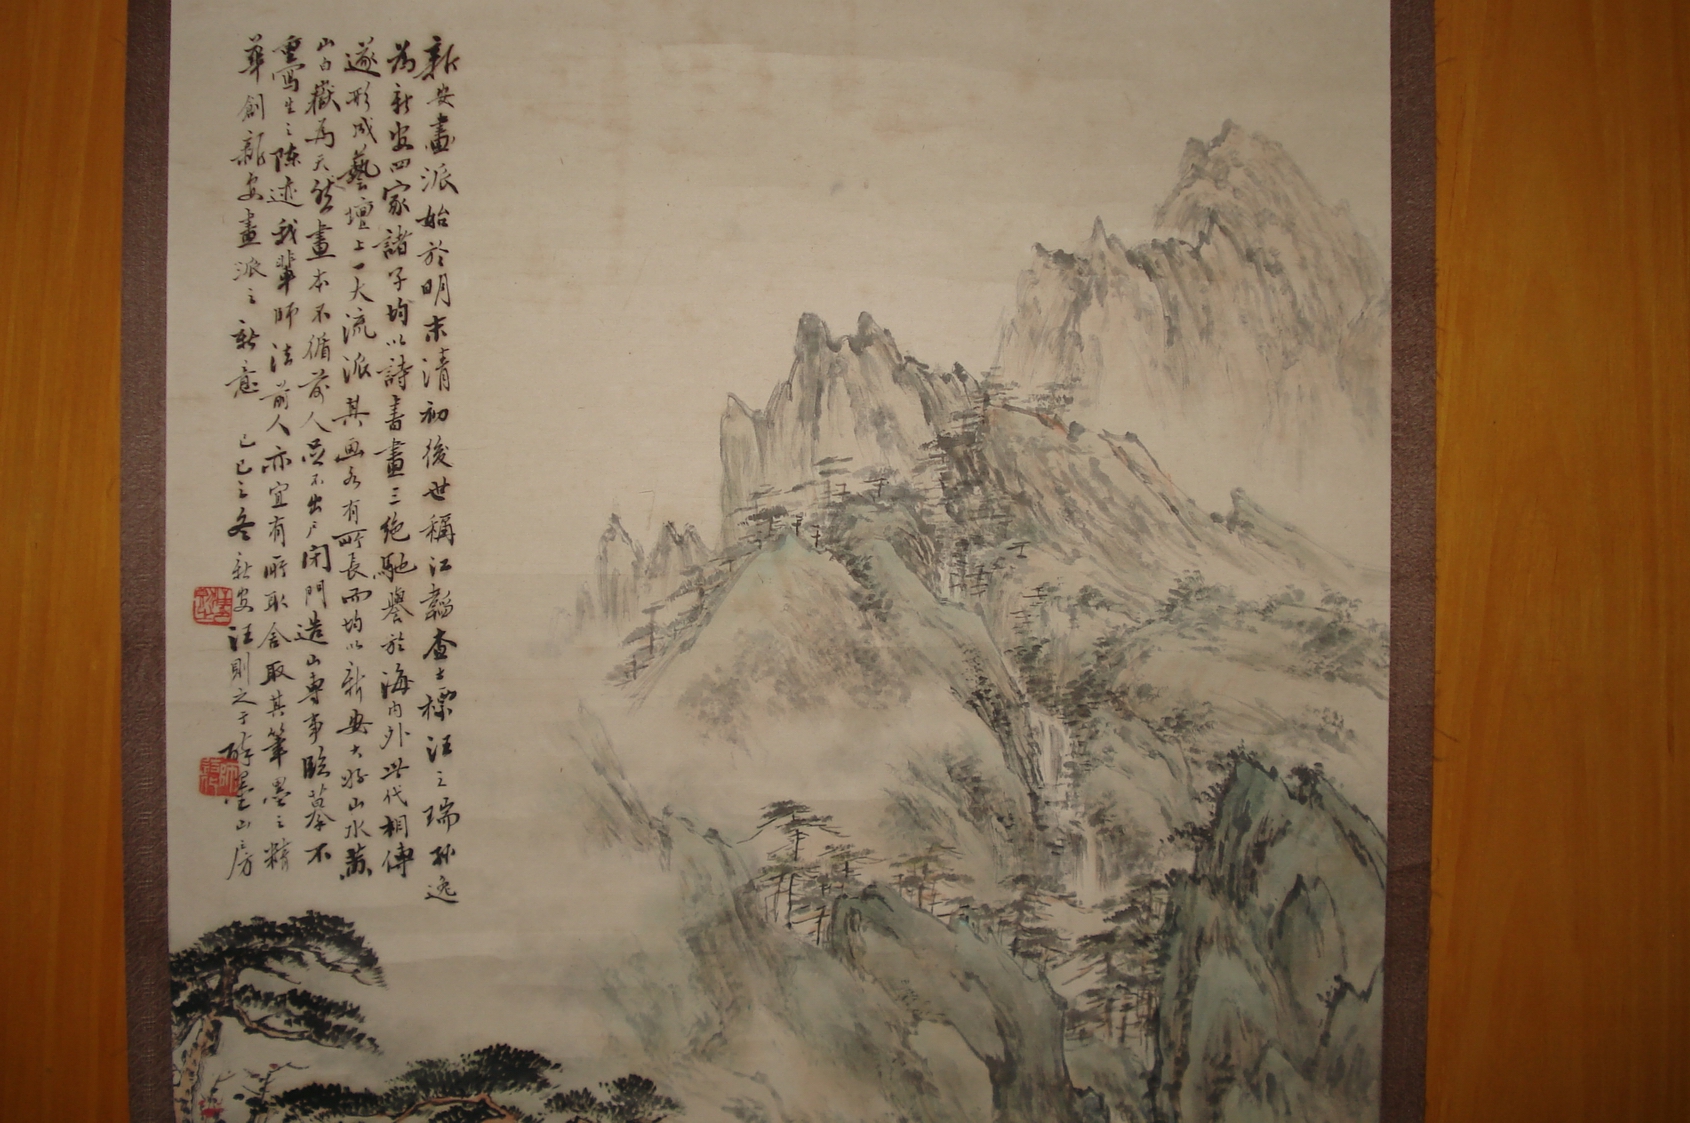 新安畫派始於明末清初後世稱江韜查士標汪之瑞孫逸
為新安四家諸子均以詩書畫三絕馳譽於海內外世代相傳
遂形成藝壇上一大流派其画各有所長而均以新安大好山水黃
山白嶽為天然畫本不循前人足不出户闭門造山專事臨摹不
重寫生之陳迹我輩師法前人亦宜有所取舍取其筆墨之精
華創新安畫派之新意 己巳之冬新安汪則之于醉墨山房